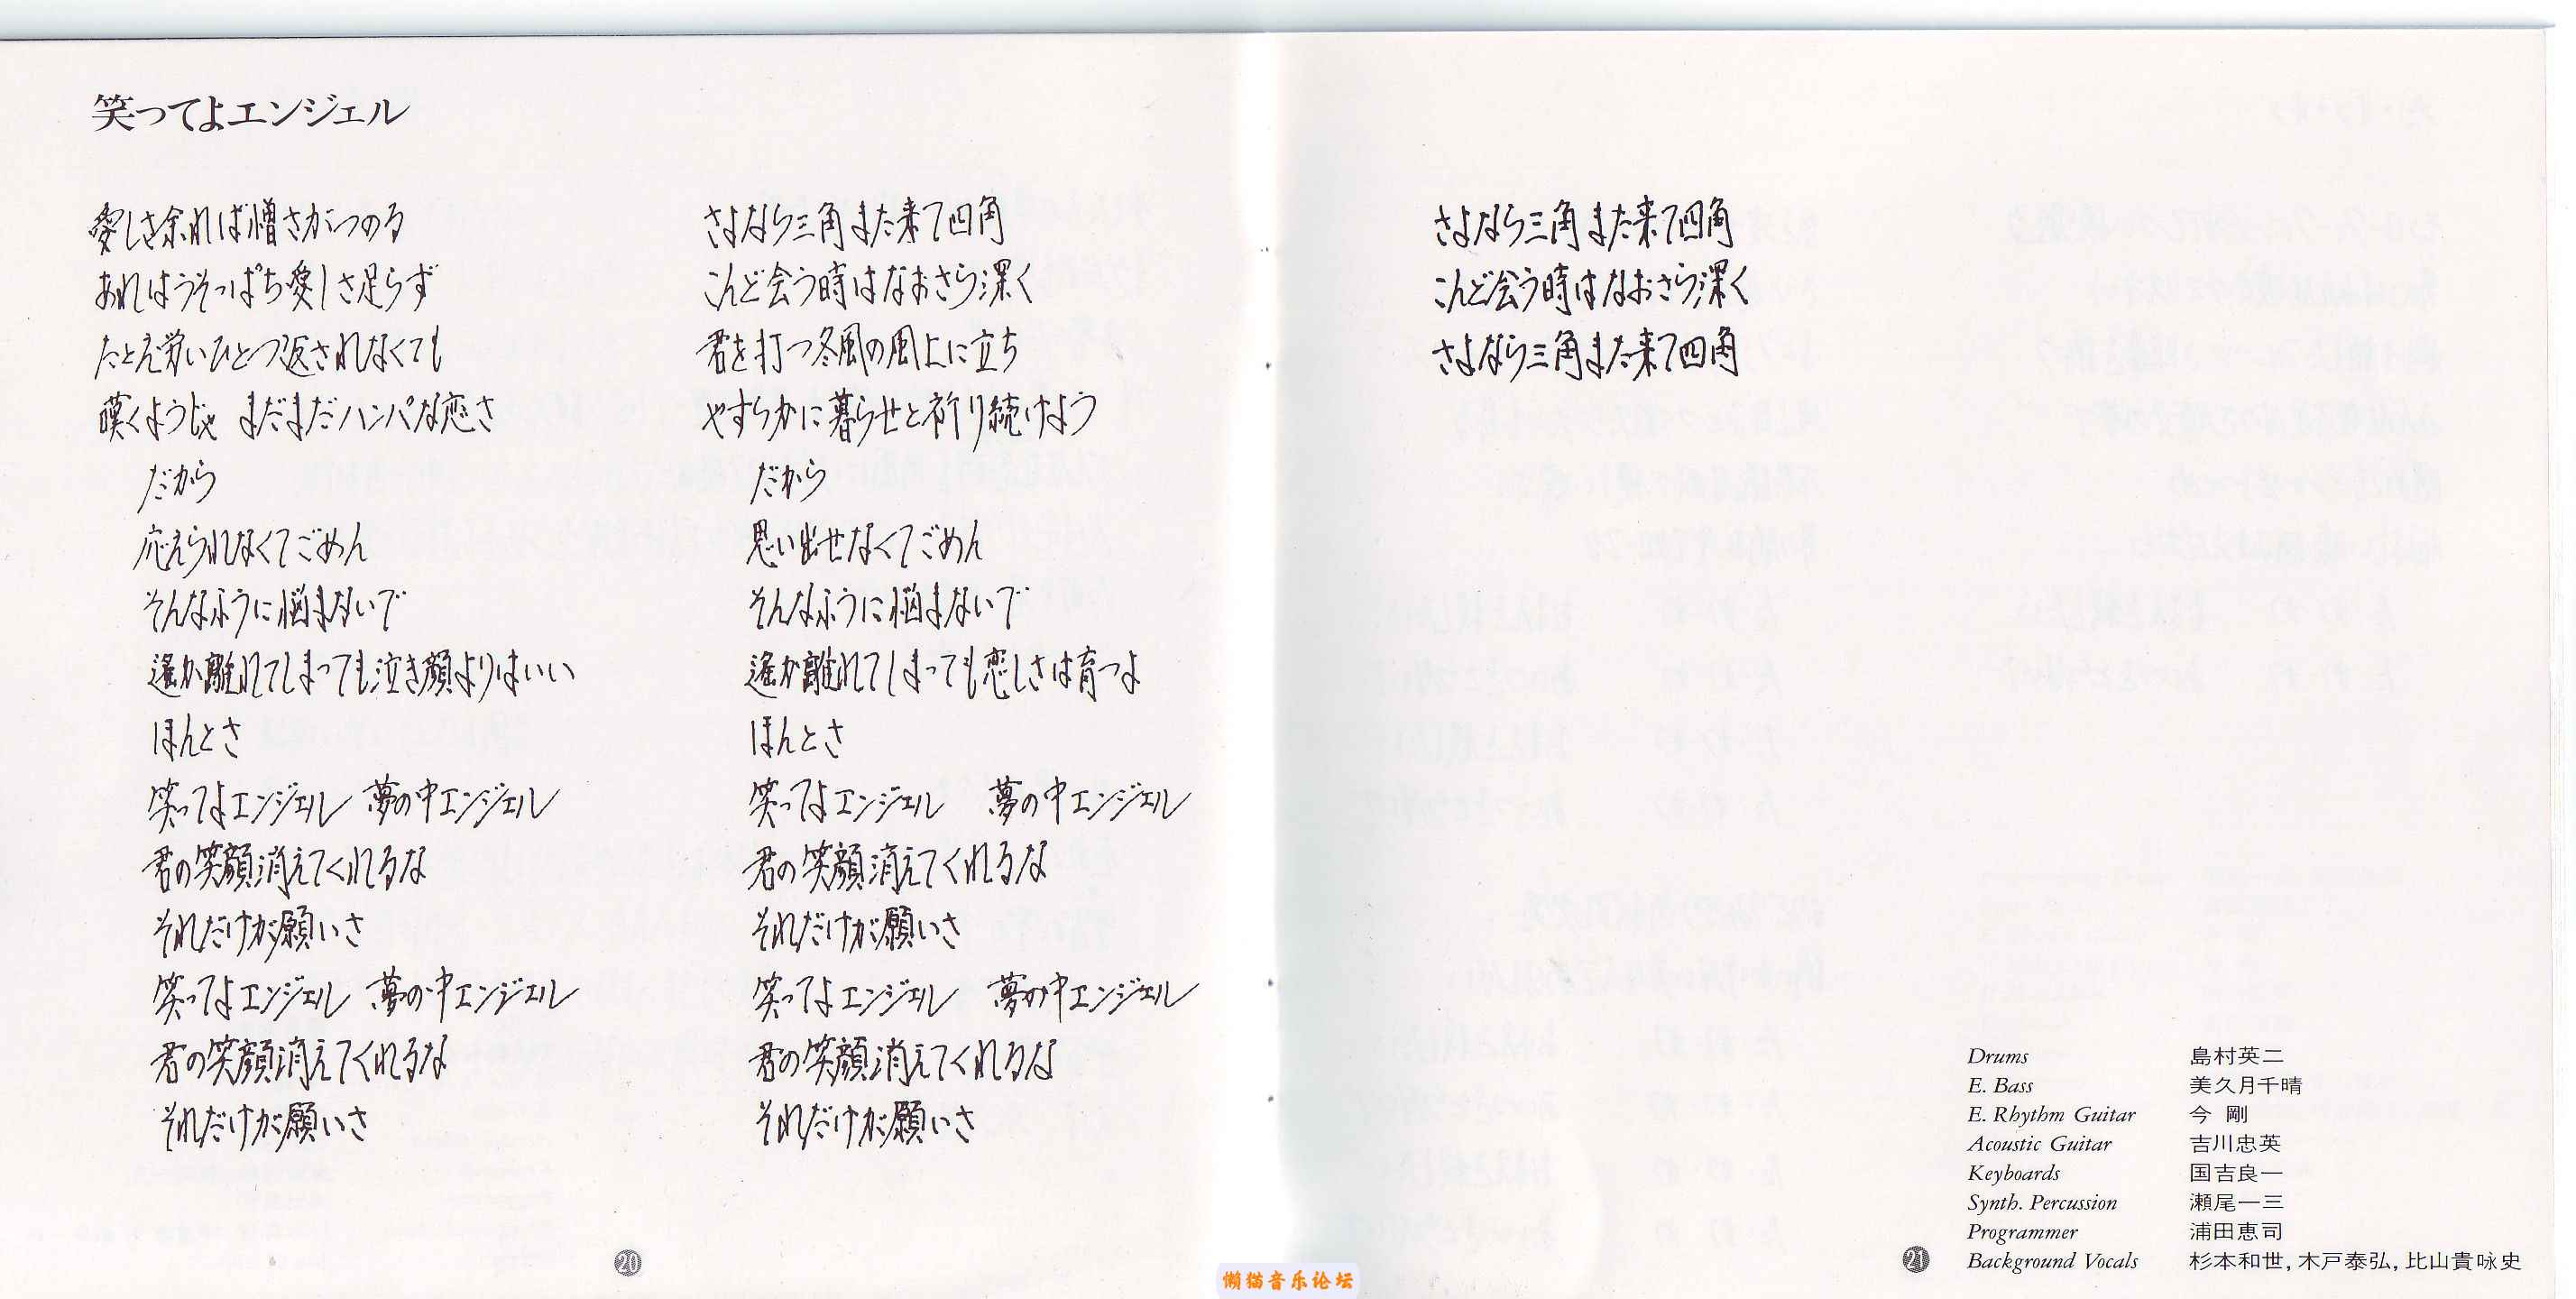 笑ってよエンジェル
愛しさ余れば憎さがつのる
あれはうそっぱち愛しさ足らず
たとえ笑いひとつ返されなくても
嘆くようじゃ まだまだハンパな恋さ
だから
応えられなくてごめん
そんなふうに悩まないで
遙か離れてしまっても泣き顔よりはいい
ほんとさ
笑ってよエンジェル 夢の中エンジェル
君の笑顔消えてくれるな
それだけが願いさ
笑ってよエンジェル 夢の中エンジェル
君の笑顔消えてくれるな
それだけが願いさ
さよなら三角また来て四角
こんど会う時はなおさら深く
君を打つ冬風の風上に立ち
やすらかに暮らせと祈り続けよう
だから
思い出せなくてごめん
そんなふうに悩まないで
遙か離れてしまっても恋しさは育つよ
ほんとさ
笑ってよエンジェル 夢の中エンジェル
君の笑顔消えてくれるな
それだけが願いさ
笑ってよエンジェル 夢の中エンジェル
君の笑顔消えてくれるな
それだけが願いさ
20
さよなら三角また来て四角
こんど会う時はなおさら深く
さよなら三角また来て四角
Drums 島村英二
E. Bass 美久月千晴
E. Rhythm Guitar 今 剛
Acoustic Guitar 吉川忠英
Keyboards 国吉良一
Synth. Percussion 瀬尾一三
Programmer 浦田恵司
Background Vocals 杉本和世, 木戸泰弘, 比山貴咏史
21
懒猫音乐论坛